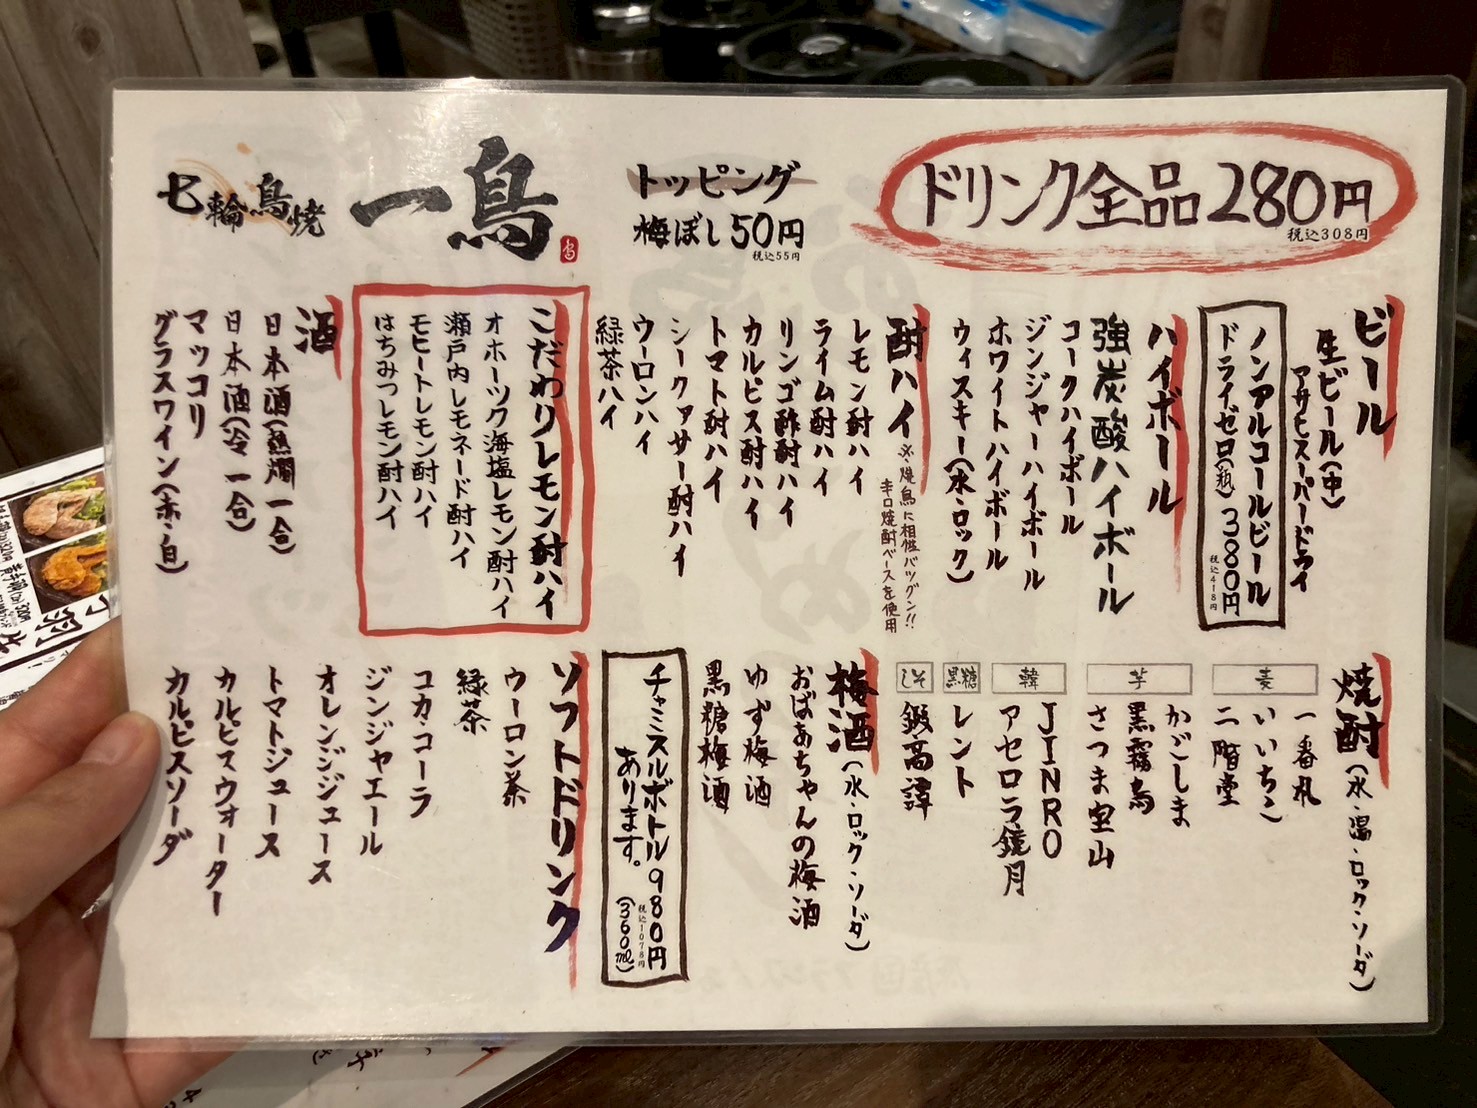 七輪鳥焼
一鳥
鳥
トッピング
梅ぼし50円
税込55円
ドリンク全品280円
税込308円
ビール
生ビール(中)
アサヒスーパードライ
ノンアルコールビール
ドライゼロ(瓶) 380円
税込418円
ハイボール
強炭酸ハイボール
コークハイボール
ジンジャーハイボール
ホワイトハイボール
ウィスキー(水・ロック)
酎ハイ
※焼鳥に相性バツグン!!
辛口焼酎ベースを使用
レモン酎ハイ
ライム酎ハイ
リンゴ酢酎ハイ
カルピス酎ハイ
トマト酎ハイ
シークァサー酎ハイ
ウーロンハイ
緑茶ハイ
こだわりレモン酎ハイ
オホーツク海塩レモン酎ハイ
瀬戸内レモネード酎ハイ
モヒートレモン酎ハイ
はちみつレモン酎ハイ
酒
日本酒(熱燗 一合)
日本酒(冷 一合)
マッコリ
グラスワイン(赤・白)
焼酎(水・湯・ロック・ソーダ)
麦
一番札
いいちこ
二階堂
芋
かごしま
黒霧島
さつま宝山
韓
JINRO
アセロラ鏡月
黒糖
レント
しそ
鍛高譚
梅酒(水・ロック・ソーダ)
おばあちゃんの梅酒
ゆず梅酒
黒糖梅酒
チャミスルボトル980円
税込1078円
あります。(360ml)
ソフトドリンク
ウーロン茶
緑茶
コカ・コーラ
ジンジャエール
オレンジジュース
トマトジュース
カルピスウォーター
カルピスソーダ